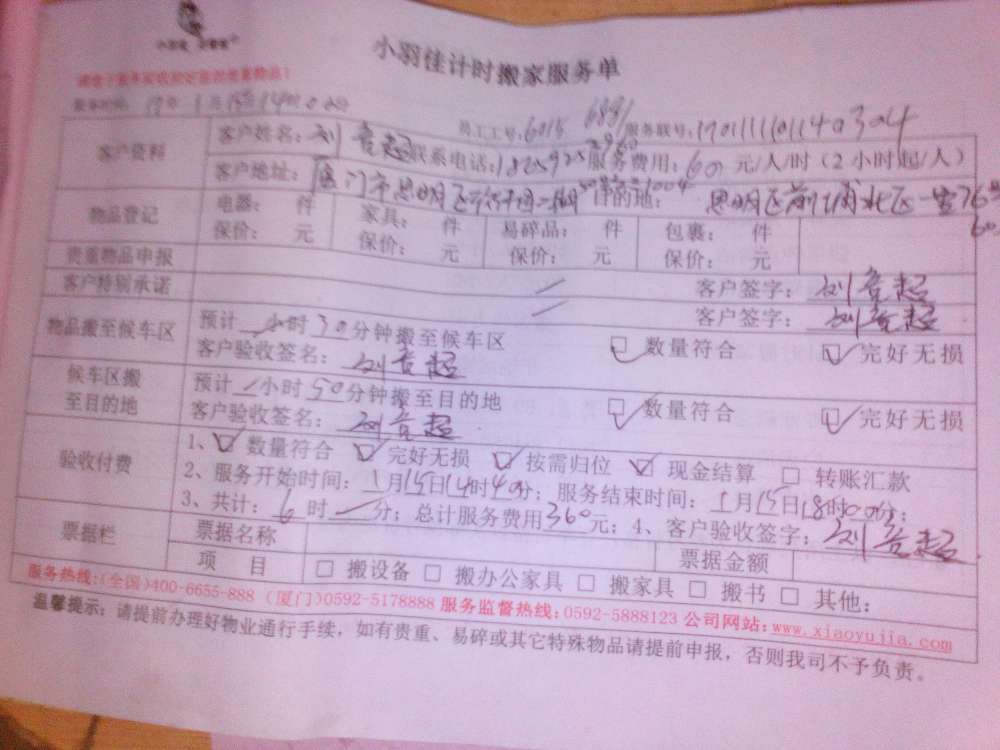 小羽佳计时搬家服务单
服务时间: 17年1月15日14时00分
员工工号:6015 6891 服务联号:1701111101140304
客户资料 客户姓名: 刘 超 联系电话: 服务费用: 60 元/人/时(2小时起/人)
客户地址: 厦门市思明区 目的地: 1004 思明区前埔北区一里76号 60
物品登记 电器: 件 家具: 件 易碎品: 件 包裹: 件
保价: 元 保价: 元 保价: 元 保价: 元
贵重物品申报 客户签字: 刘 超
客户特别承诺 客户签字: 刘 超
物品搬至候车区 预计 小时30分钟搬至候车区 数量符合 完好无损
客户验收签名: 刘 超
候车区搬至目的地 预计 小时50分钟搬至目的地 数量符合 完好无损
客户验收签名: 刘 超
验收付费 1、数量符合 完好无损 按需归位 现金结算 转账汇款
2、服务开始时间: 1月15日14时40分; 服务结束时间: 1月15日18时00分;
3、共计: 6 时 分; 总计服务费用360元; 4、客户验收签字: 刘 超
票据栏 票据名称 票据金额
项 目 □ 搬设备 □ 搬办公家具 □ 搬家具 □ 搬书 □ 其他:
服务热线:(全国)400-6655-888 (厦门)0592-5178888 服务监督热线:0592-5888123 公司网站:www.xiaoyujia.com
温馨提示: 请提前办理好物业通行手续,如有贵重、易碎或其它特殊物品请提前申报,否则我司不予负责。